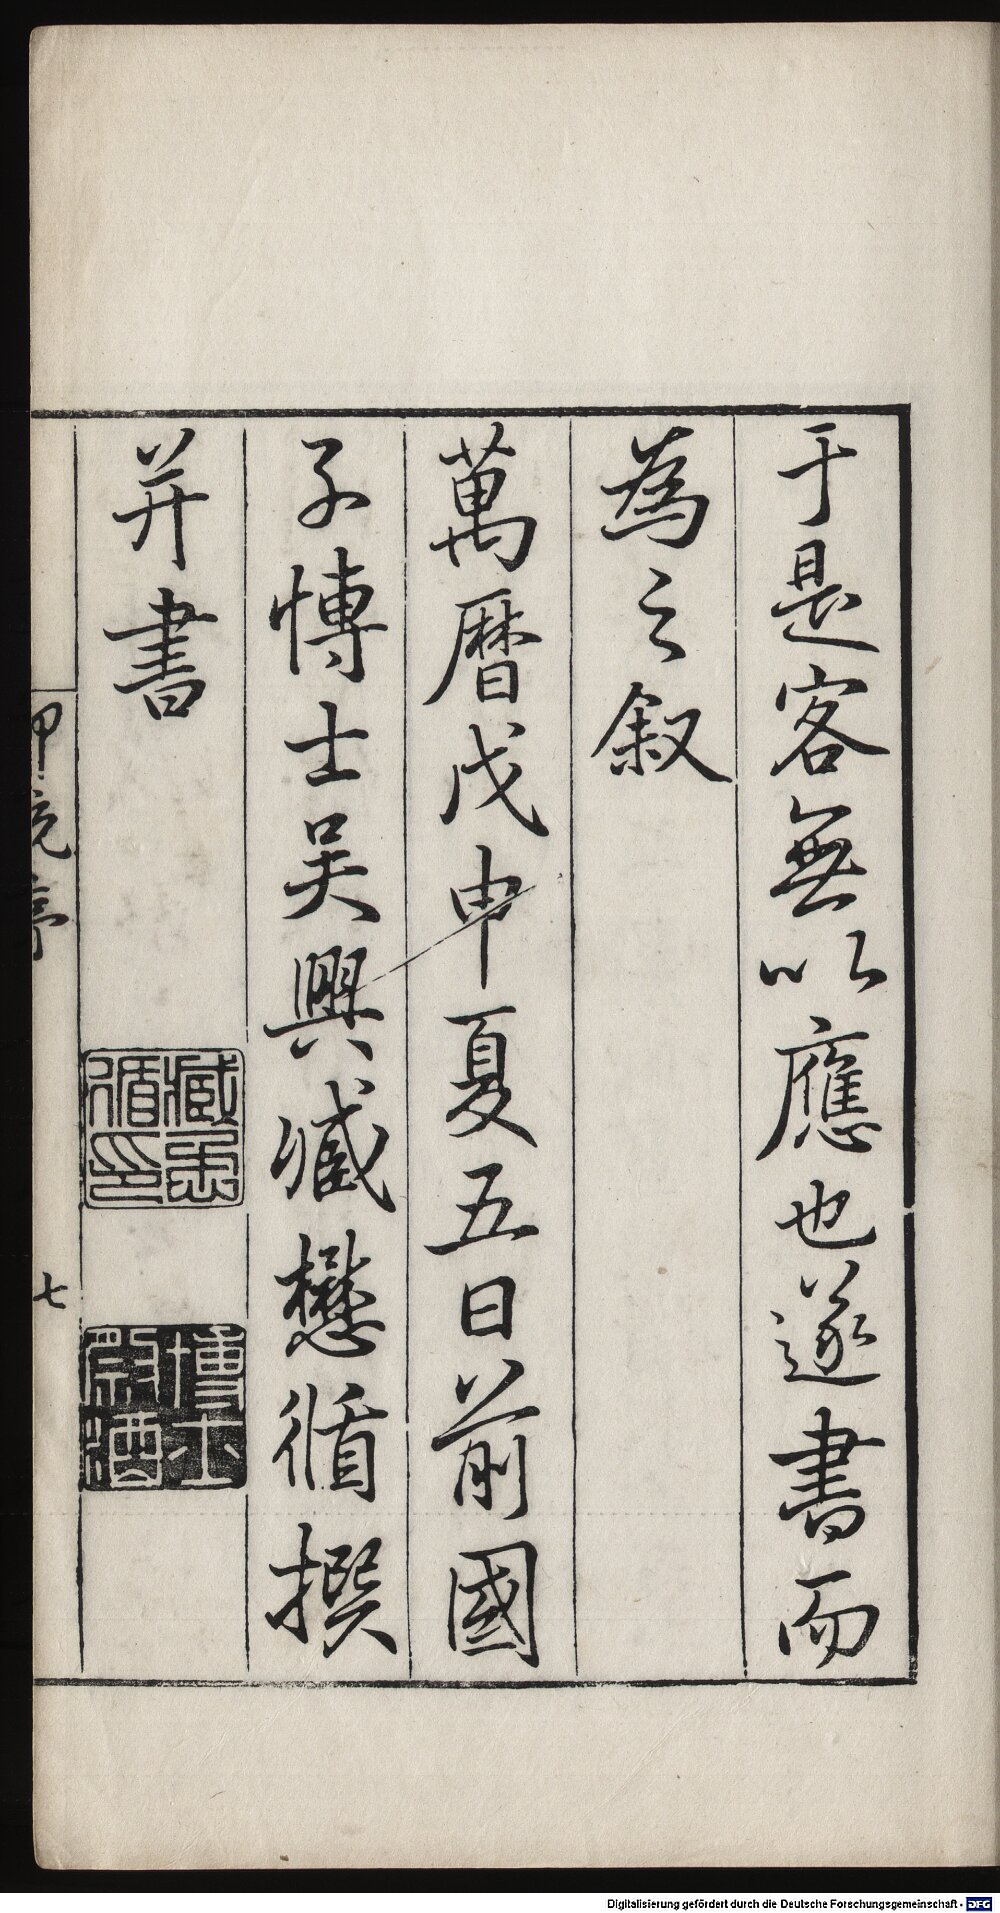 于是客無以應也遂書而
為之叙
萬曆戊申夏五日前國
子博士吳興臧懋循撰
并書
臧懋循印
博士祭酒
七
Digitalisierung gefördert durch die Deutsche Forschungsgemeinschaft - DFG